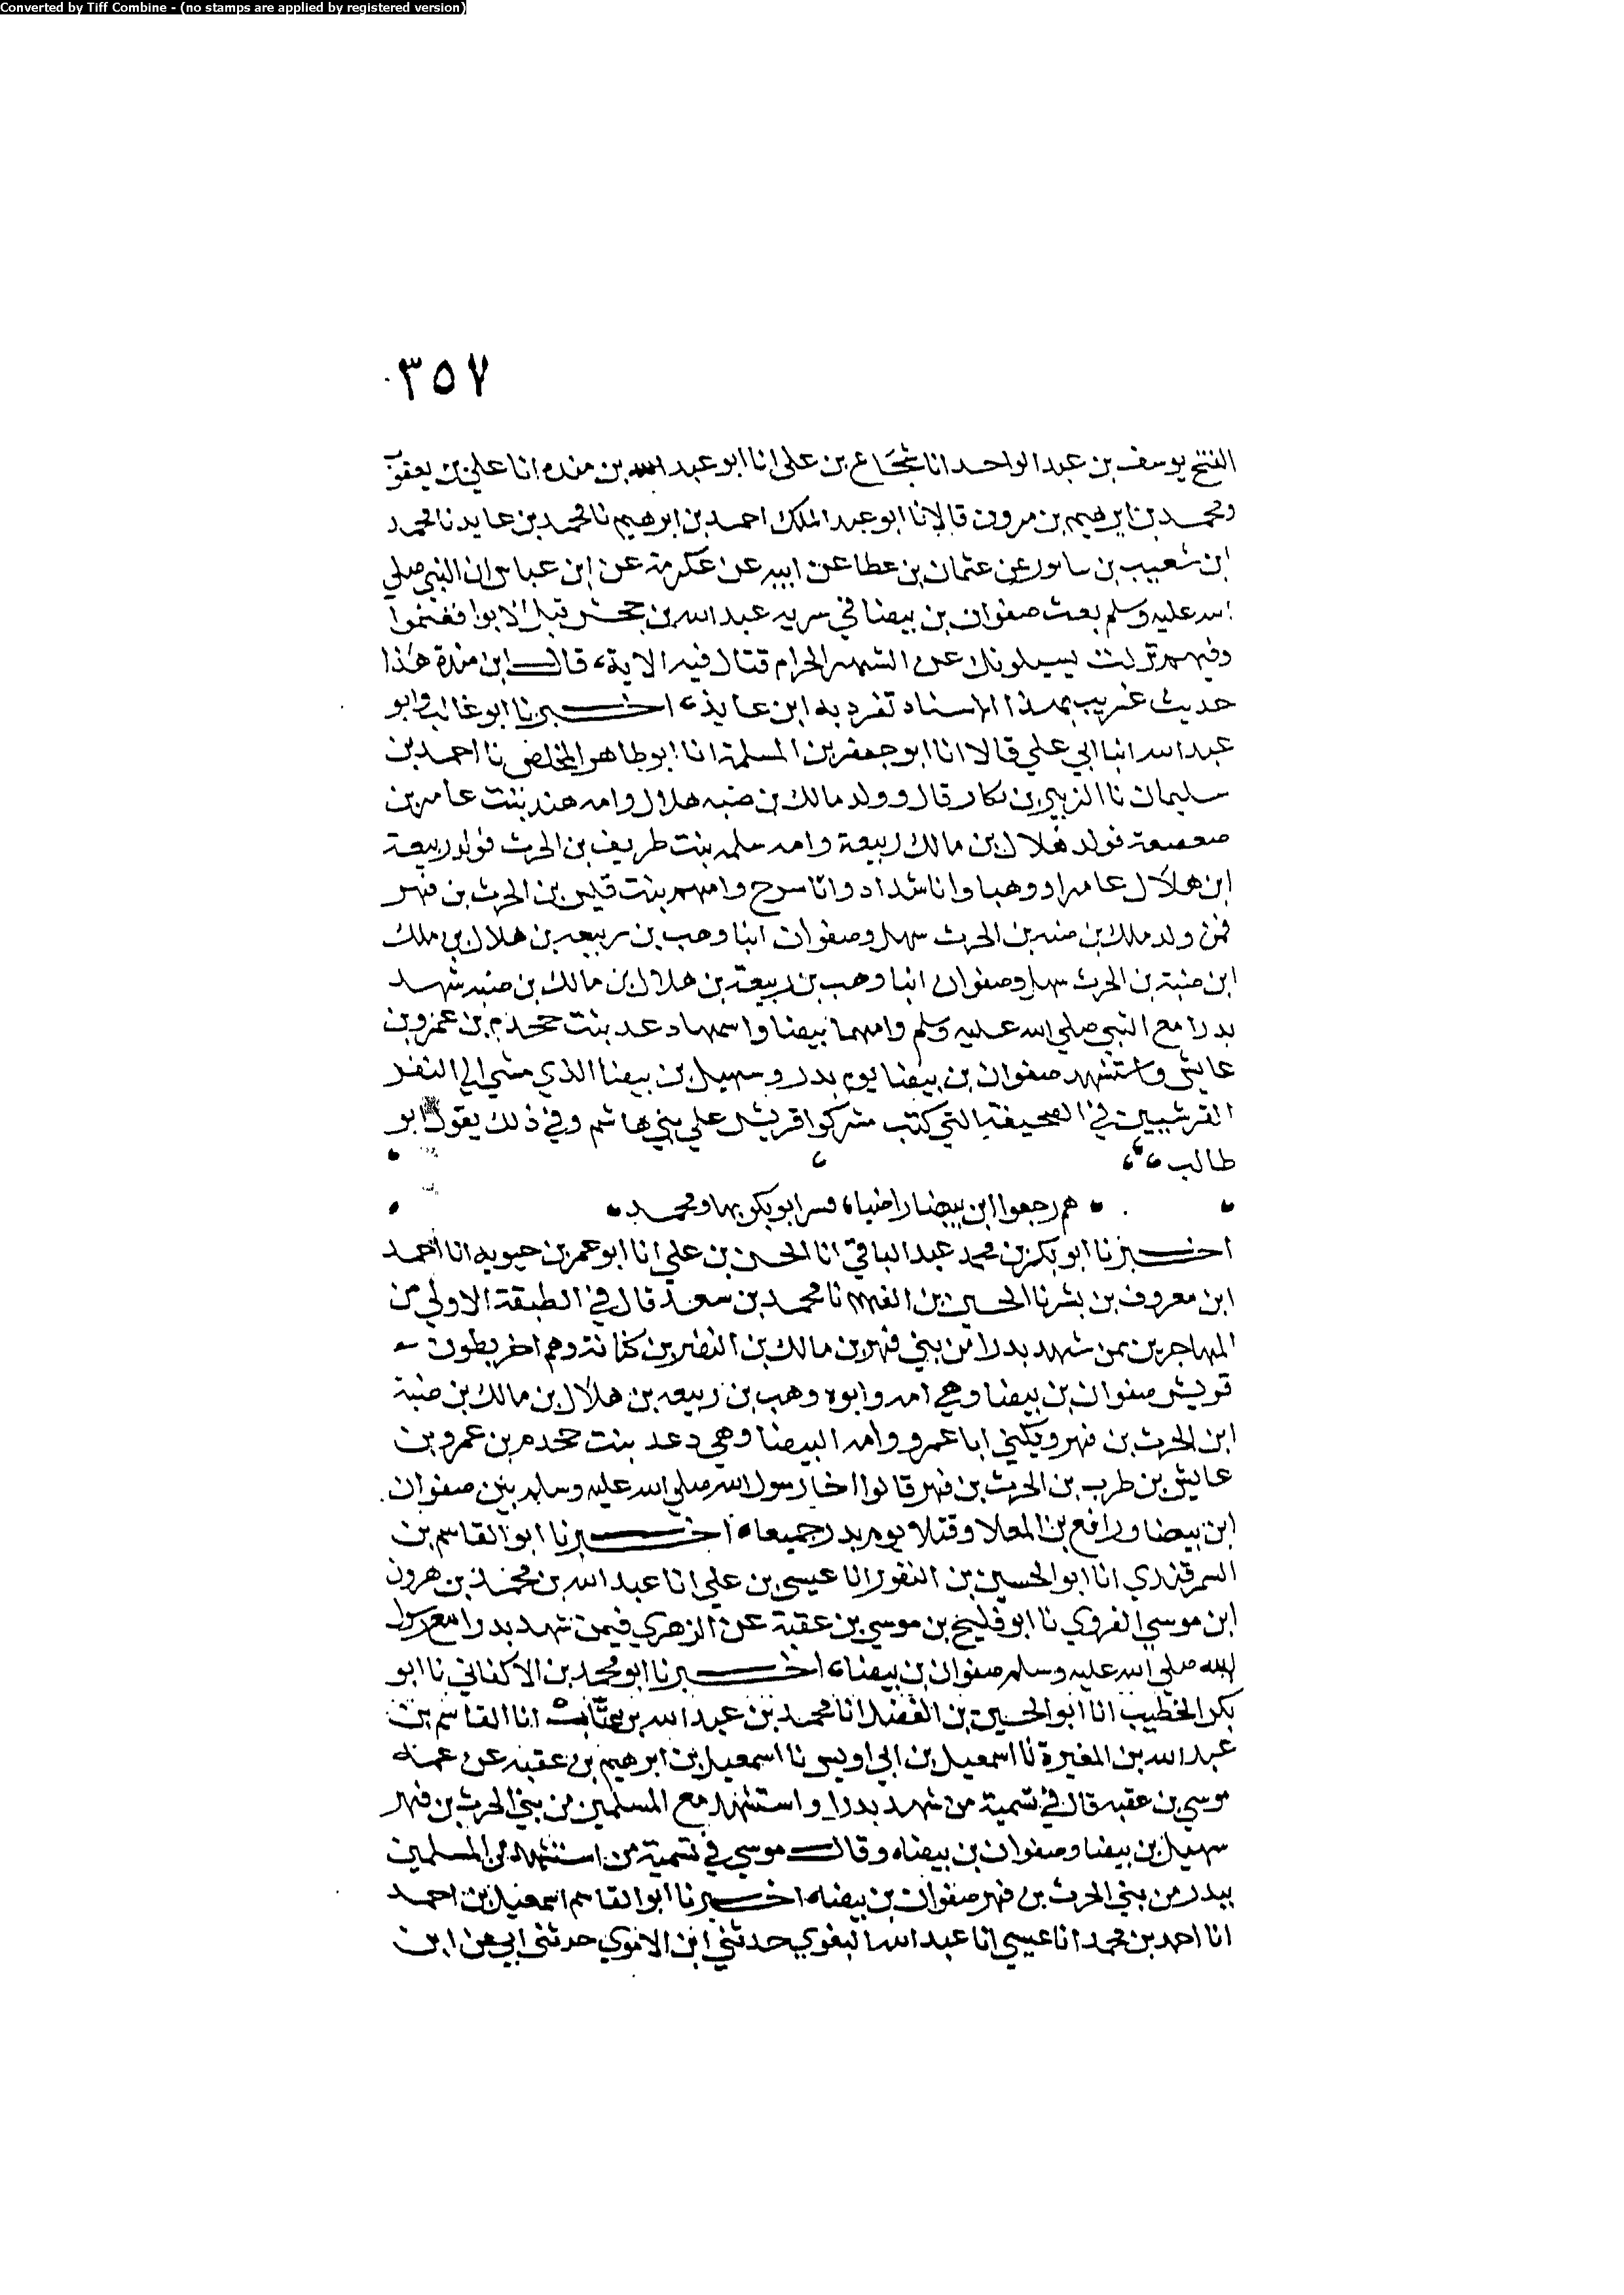 Converted by Tiff Combine - (no stamps are applied by registered version)
٣٥٧
الفتح يوسف بن عبد الواحد انا شجاع بن علي انا ابو عبد الله بن منده انا علي بن يعقوب
ومحمد بن ابرهيم بن مرون قالا نا ابو عبد الملك احمد بن ابرهيم نا محمد بن عايد نا محمد
ابن شعيب بن سابور عن عثمان بن عطا عن ابيه عن عكرمة عن ابن عباس ان النبي صلي
الله عليه وسلم بعث صفوان بن بيضا في سريه عبد الله بن جحش قبل الابوا فغنموا
وفيهم نزلت يسيلونك عن الشهر الحرام قتال فيه الاية، قال ابن مندة هذا
حديث غريب بهذا الاسناد تفرد به ابن عايذ، اخبرنا ابو غالب وابو
عبد الله ابنا ابي علي قالا انا ابو جعفر بن المسلمة انا ابو طاهر المخلص نا احمد بن
سليمان نا الزبير بن بكار قال وولد مالك بن ضبه هلال وامه هند بنت عامر بن
صعصعة فولد هلال بن مالك ربيعة وامه سلمه بنت طريف بن الحرث فولد ربيعة
ابن هلال عامرا ووهبا وابا شداد وابا سرح وامهم بنت قيس بن الحرث بن فهر
فمن ولد ملك بن ضبه بن الحرث سهل وصفوان ابنا وهب بن ربيعه بن هلال بن ملك
ابن ضبة بن الحرث سهل وصفوان ابنا وهب بن ربيعة بن هلال بن مالك بن ضبه شهد
بدرا مع النبي صلي الله عليه وسلم وامهما بيضا واسمها دعد بنت جحدم بن عمرو بن
عايش واستشهد صفوان بن بيضا يوم بدر وسهيل بن بيضا الذي مشي الي النفر
القرشيين في الصحيفة التي كتب مشركوا قريش علي بني هاشم وفي ذلك يقول ابو
طالب
هم رجعوا ابن بيضا راضيا، وسر ابو بكر بها ومحمد
اخبرنا ابو بكر بن محمد عبد الباقي انا الحسن بن علي انا ابو عمر بن حيويه انا احمد
ابن معروف بن بشر نا الحسين بن الفهم نا محمد بن سعد قال في الطبقة الاولي من
المهاجرين ممن شهد بدرا من بني فهر بن مالك بن النضر بن كنانة وهم اخر بطون
قريش صفوان بن بيضا وهي امه وابوه وهب بن ربيعه بن هلال بن مالك بن ضبة
ابن الحرث بن فهر ويكني ابا عمرو وامه البيضا وهي دعد بنت جحدم بن عمرو بن
عايش بن طرب بن الحرث بن فهر قالوا اخا رسول الله صلي الله عليه وسلم بين صفوان
ابن بيضا ورافع بن المعلا وقتلا يوم بدر جميعا، اخبرنا ابو القاسم بن
السمرقندي انا ابو الحسين بن النقور انا عيسي بن علي انا عبد الله بن محمد بن هرون
ابن موسي الفروي نا ابو فليح بن موسي بن عقبة عن الزهري فيمن شهد بدرا مع رسول
الله صلي الله عليه وسلم صفوان بن بيضا، اخبرنا ابو محمد بن الاكفاني نا ابو
بكر الخطيب انا ابو الحسين بن الفضل انا محمد بن عبد الله بن عتاب انا القاسم بن
عبد الله بن المغيرة نا اسمعيل بن ابي اويس نا اسمعيل بن ابرهيم بن عقبه عن عمه
موسي بن عقبه قال في تسمية من شهد بدرا واستشهد مع المسلمين من بني الحرث بن فهر
سهيل بن بيضا وصفوان بن بيضا، وقال موسي في تسمية من استشهد من المسلمين
ببدر من بني الحرث بن فهر صفوان بن بيضا، اخبرنا ابو القاسم اسمعيل بن احمد
انا احمد بن محمد انا عيسي انا عبد الله البغوي حدثني ابن الاموي حدثني ابي عن ابن